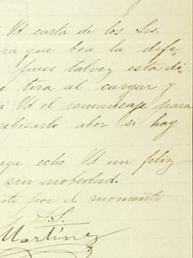 Ud carta de los Srs.
ra que bea la dife
pues talvez esta di
e tira al cargar y
a Ud el remendage para
relisarlo aber si hay
ega echo Ud un feliz
sin nobedad.
to por el momento
y S.S.
Martinez